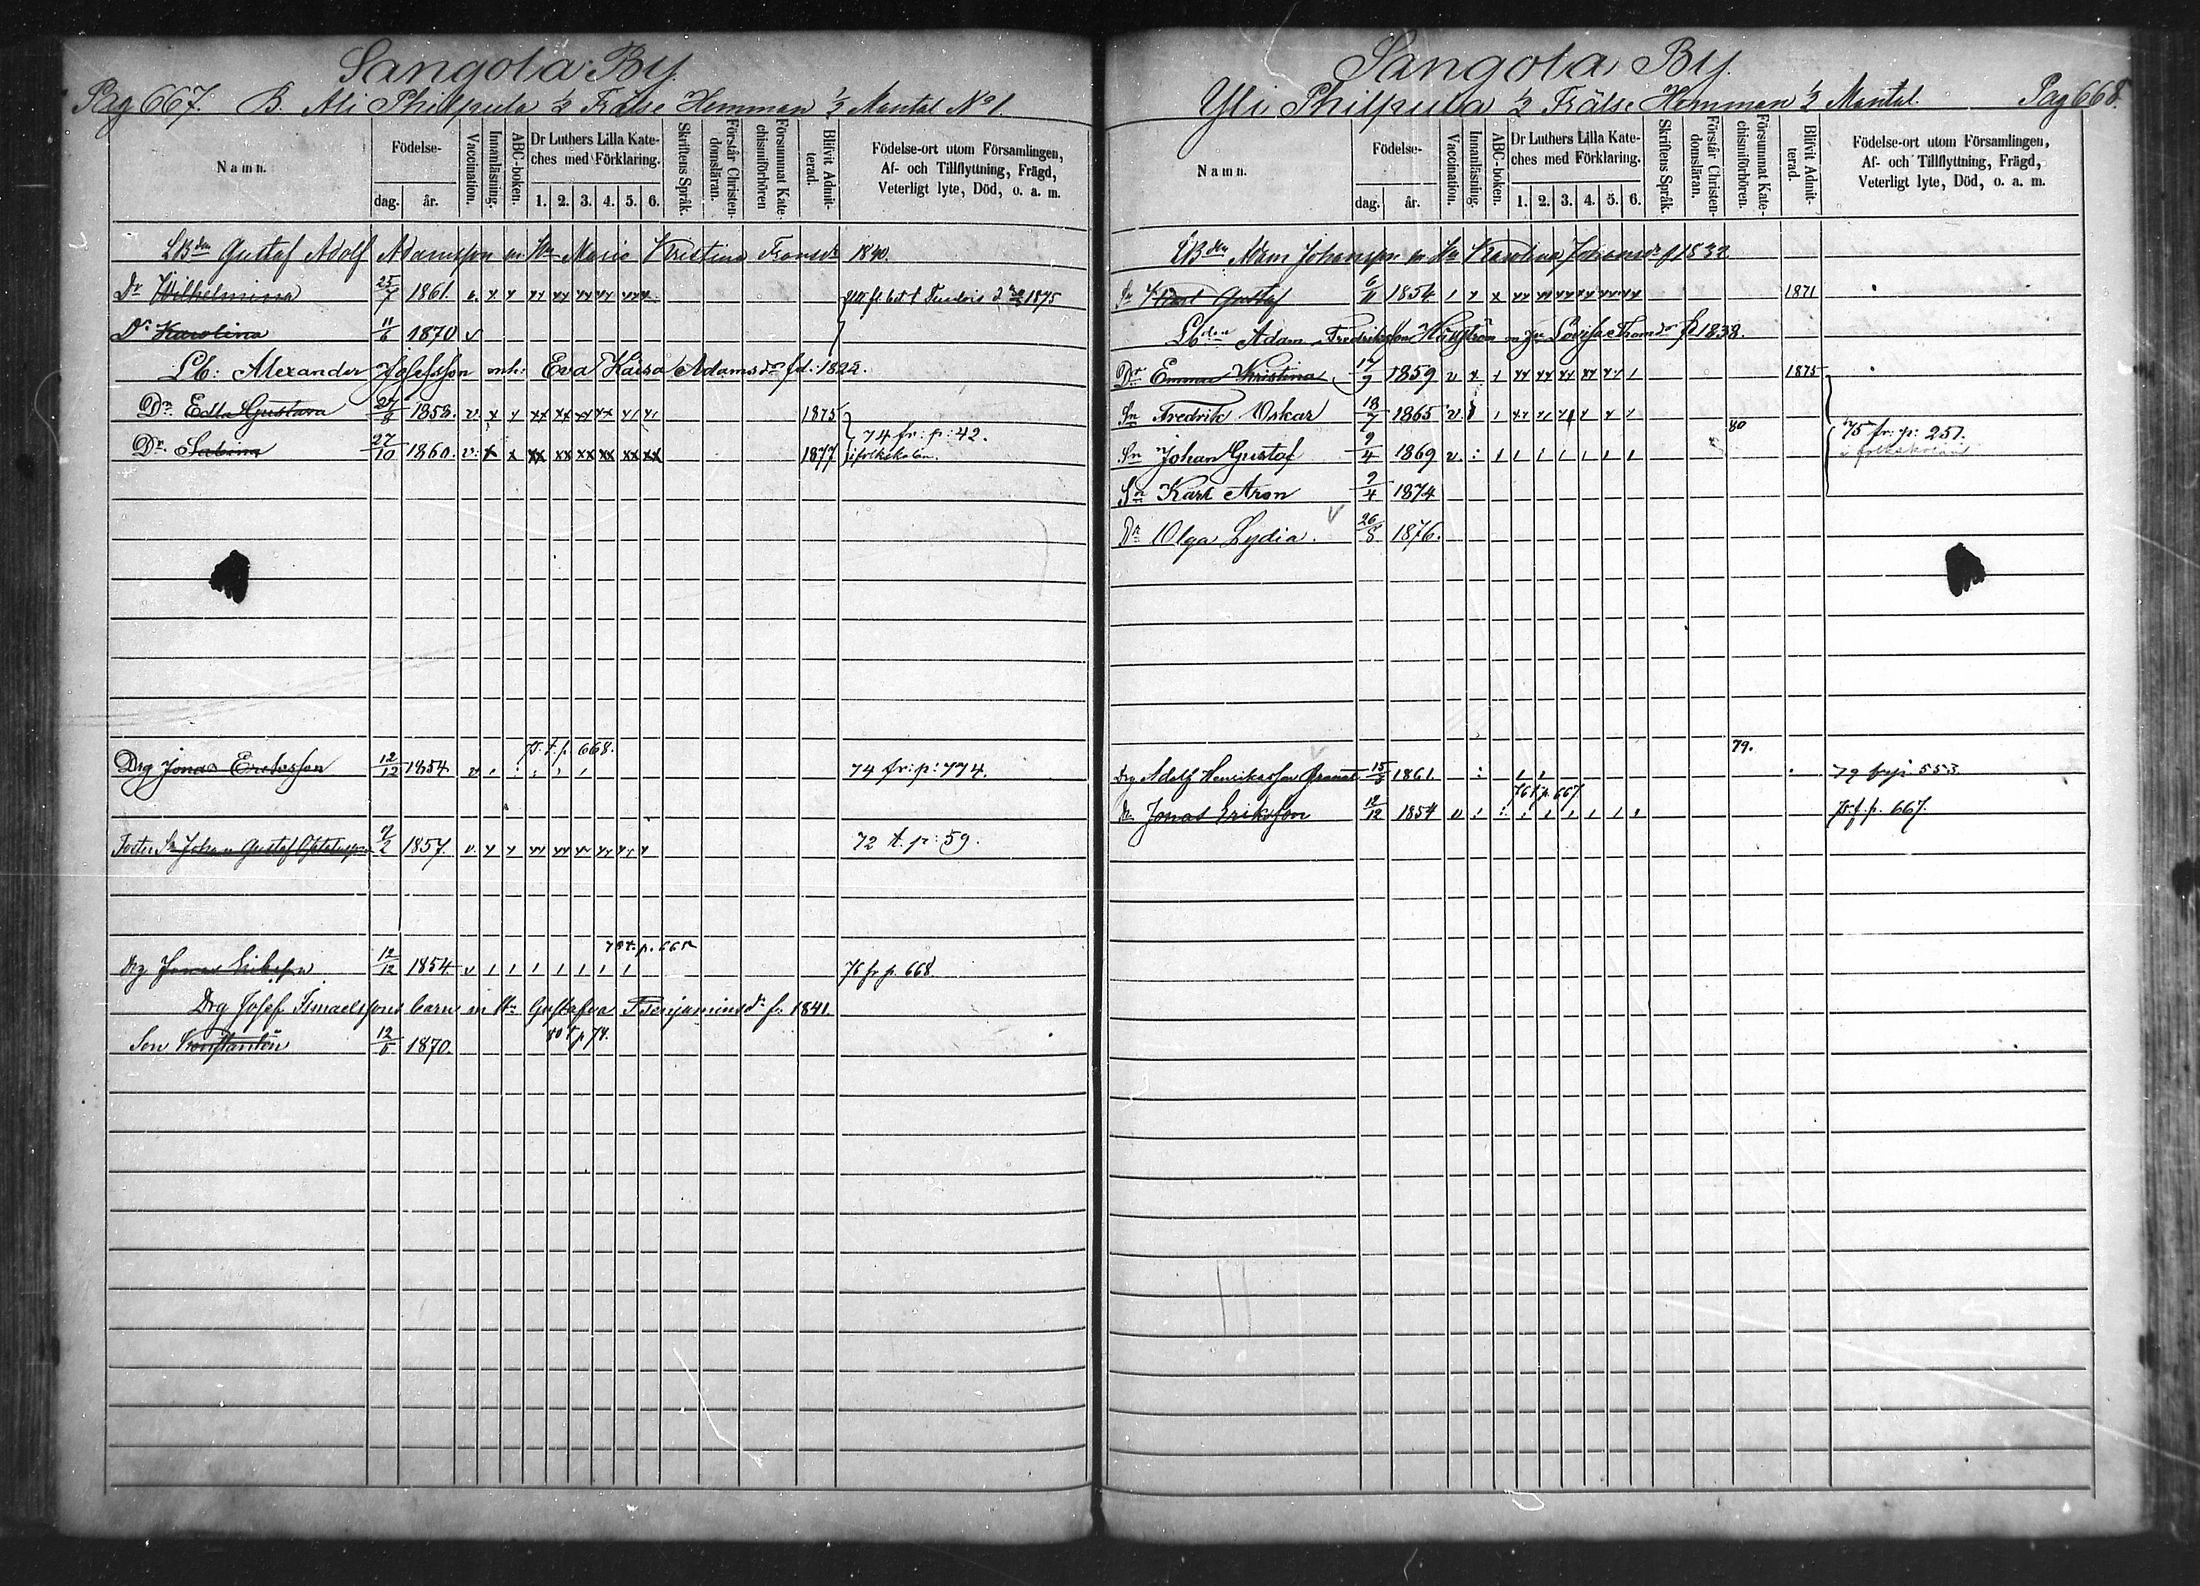 Sangola By.
Pag 667. B. Ali Philpula ½ Frälse Hemman ½ Mantal No 1.
Namn.
Födelse-
dag. år.
Vaccination.
Innanläsning.
ABC-boken.
Dr Luthers Lilla Kate-
ches med Förklaring.
1. 2. 3. 4. 5. 6.
Skriftens Språk.
Förstår Christen-
domsläran.
Försummat Kate-
chismiförhören
Blifvit Admit-
terad.
Födelse-ort utom Församlingen,
Af- och Tillflyttning, Frägd,
Veterligt lyte, Död, o. a. m.
LBden Gustaf Adolf Adamsson m Hu Maria Kristina Fransdr 1840.
Dr Wilhelmina 25/7 1861. v. x x xx xx xx xx xxx 1875
Dr Karolina 11/6 1870 v
Lb: Alexander Josefsson m h: Eva Kaisa Adamsdr fd: 1822.
Dr Edla Gustava 27/8 1853. v. x x xx xx xx xx x x 1875
74 fr: p: 42.
Dr. Sabina 27/10 1860. v: x x xx xx xx xx xx xx 1877 i folkskolan.
75. t. p. 668.
Drg Jonas Ericksson 12/12 1854 v 74 fr: p: 774.
Foster Sn Johan Gustaf 9/2 1857. v. x x xx xx xx xx xx x 72 t. p: 59.
78 t. p. 668
Drg Jonas Eriksson 12/12 1854 v 1 1 1 1 1 1 1 76 fr p. 668
Drg Josef Ismaelssons barn m Hu Gustafva Benjaminsdr f. 1841.
80 t p 74.
Son Konstantin 12/5 1870.
Sangola By.
Yli Philpula ½ Frälse Hemman ½ Mantal. Pag 668.
Namn.
Födelse-
dag. år.
Vaccination.
Innanläsning.
ABC-boken.
Dr Luthers Lilla Kate-
ches med Förklaring.
1. 2. 3. 4. 5. 6.
Skriftens Språk.
Förstår Christen-
domsläran.
Försummat Kate-
chismiförhören.
Blifvit Admit-
terad.
Födelse-ort utom Församlingen,
Af- och Tillflyttning, Frägd,
Veterligt lyte, Död, o. a. m.
LBden Adam Johansson m Hu Karolina Johansdr f 1832
Sn Karl Gustaf 6/11 1854 1 x x xx xx xx xx xx xx 1871
Lbden Adam Fredriksson Häggström m hu Lovisa Thomasdr f 1838.
Dr Emma Kristina 17/9 1859 v x 1 xx xx xx xx xx 1 1875
Sn Fredrik Oskar 18/7 1865 v 1 1 xx x x x x 1
80
75 fr: p: 251.
Sn Johan Gustaf 9/4 1869 v : 1 1 1 1 1 1 1 i folkskolan
Sn Karl Aron 9/4 1874
Dr Olga Lydia. 26/8 1876.
79.
Drg Adolf Henriksson Granat 15/3 1861. : 1 1 79 fr p: 553
76 t p. 667
Dr Jonas Eriksson 12/12 1854 v 1 : 1 1 1 1 1 1 75 f. p. 667.